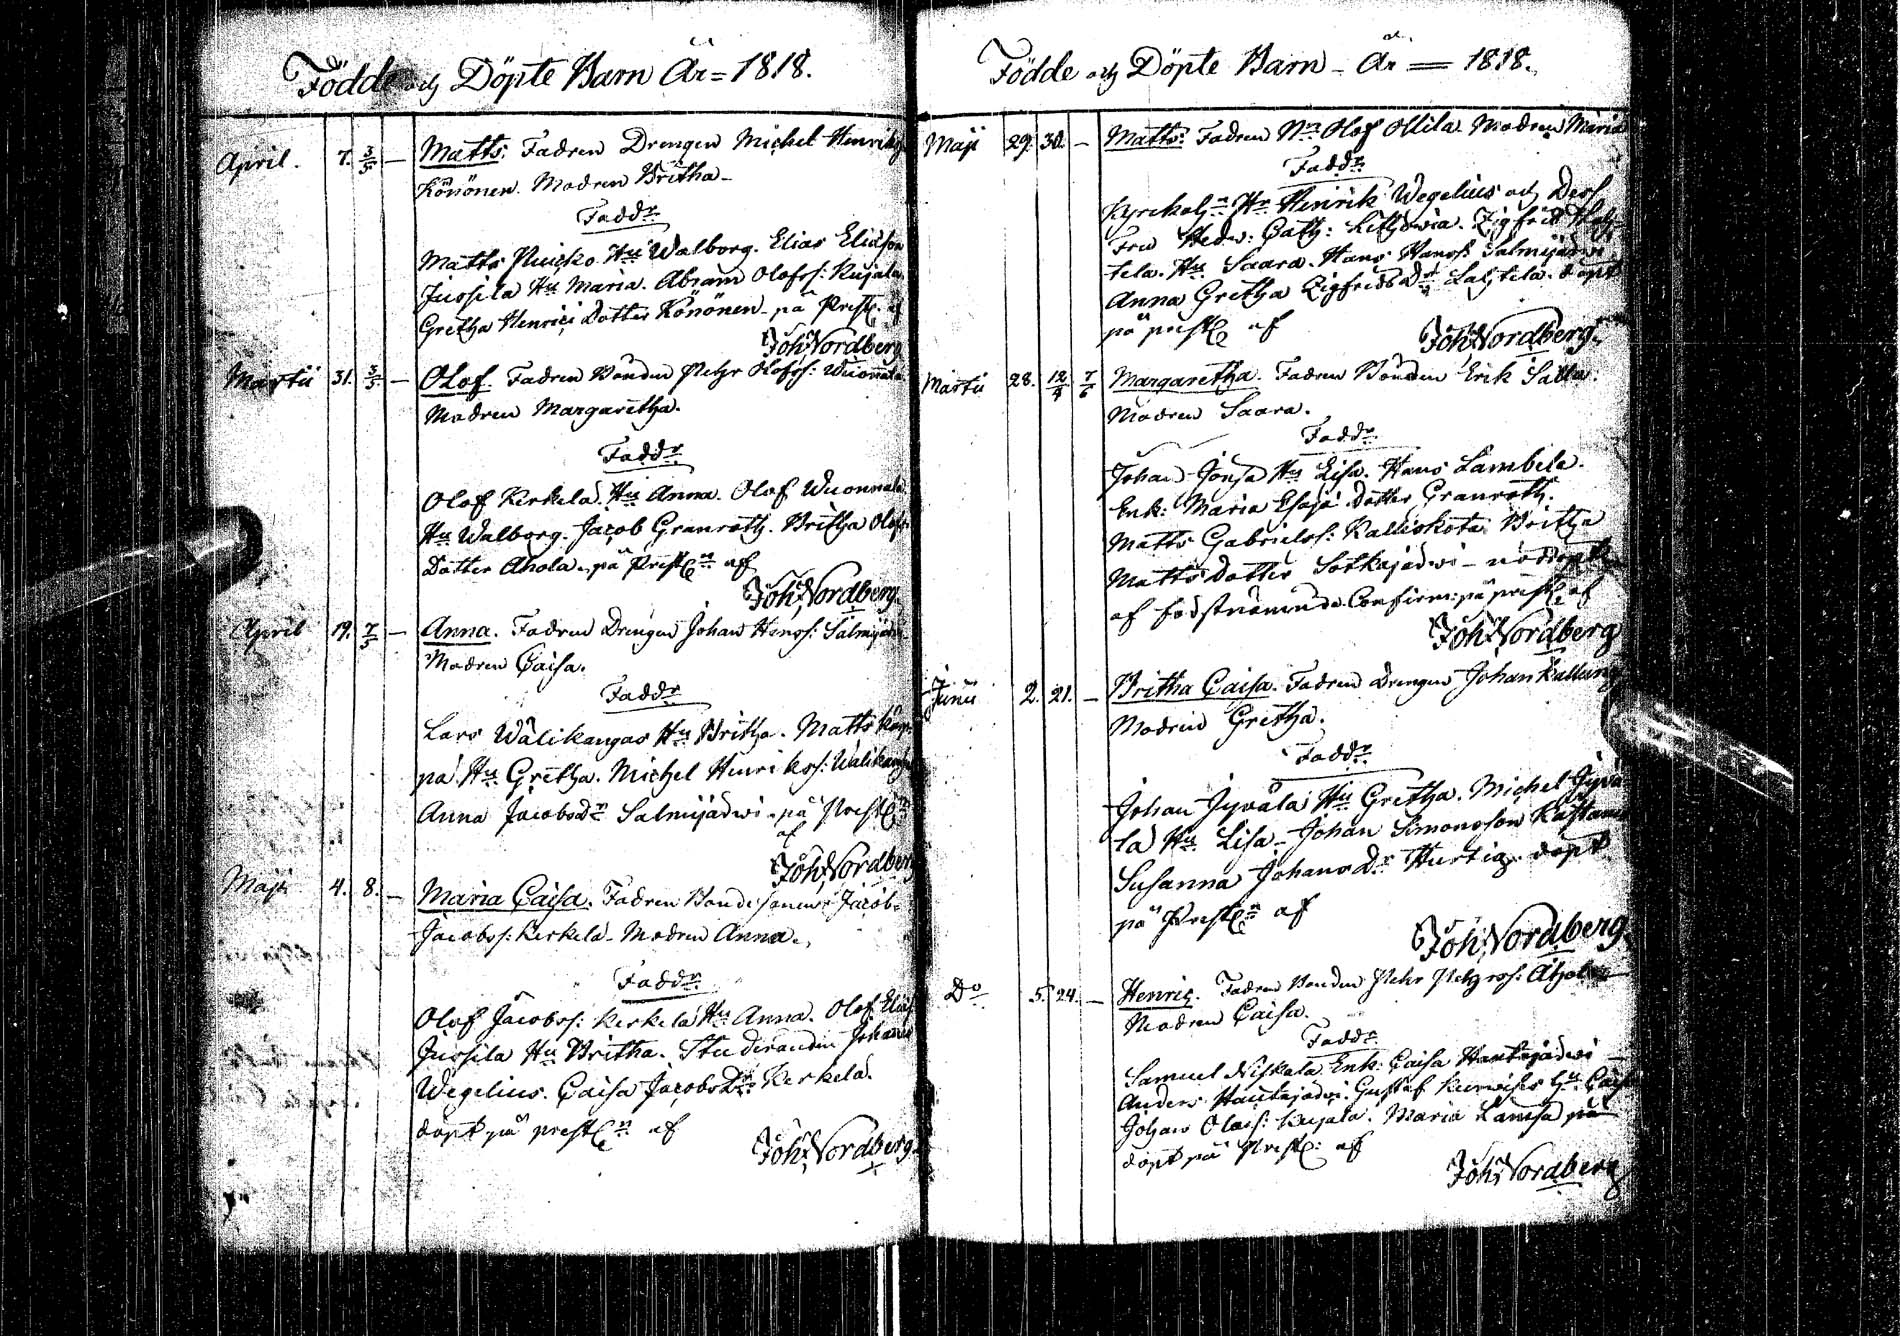 Födde och Döpte Barn År = 1818.
April. 7. 3/5 — Matts: Fadren Drengen Michel Henrics
Könönen. Modren Britha —
Faddr
Matts Hu Walborg. Elias Eliasson
Juosila Hu Maria. Abram Olofss: Kujala
Gretha Henrici Dotter Könönen — på Prest af
Joh: Nordberg.
Martii 31. 3/5 — Olof. Fadren Bonden Pehr Olofs: Wuonnala
Modren Margaretha.
Faddr
Olof Kerkela. Hu Anna. Olof Wuonnala
Hu Walborg. Jacob Granroth. Britha Olofs
Dotter Ahola. på Prest af
Joh: Nordberg.
April 19. 7/5 — Anna. Fadren Drengen Johan Hansss: Salmijärvi
Modren Caisa.
Faddr
Lars Wälikangas Hu Britha. Matts
pä. Hu Gretha. Michel Henrikss: Wälikangas
Anna Jacobsdr Salmijärwi. på Prest
af
Joh: Nordberg
Maji 4. 8. — Maria Caisa. Fadren Bondesonen Jacob
Jacobss: Kerkela. Modren Anna.
Faddr
Olof Jacobss: Kerkela Hu Anna. Olof Elias
Juosila Hu Britha. Studeranden Johannes
Wegelius. Caisa Jacobs Dr Kerkela.
döpt på prest af
Joh: Nordberg.
Födde och Döpte Barn — År = 1818.
Maji 29. 30. — Matts: Fadren Olof Ollila. Modren Maria
Faddr
Kyrkoh Hr Henrik Wegelius och Dess
Fru Hedw: Cath: Zigfrid Lah
tela. Hu Saara. Hans Hanss: Salmijärwi
Anna Gretha Zigfridsdr Lahtela. döpt
på prest af
Joh: Nordberg.
Martii 28. 12/4 7/6 Margaretha. Fadren Bonden Erik Salla.
Modren Saara.
Faddr
Johan Hu Lisa. Hans Lambela.
Enk: Maria Esajä Dotter Granroth.
Matts Gabrielss: Kalliokota Britha
Matts Dotter Sotkajärwi — nöddöpt
af förstnämnde. Confirm: på prest af
Joh: Nordberg
Junii 2. 21. — Britha Caisa. Fadren Drengen Johan Kallung
Modren Gretha.
Faddr
Johan Jyvälä Hu Gretha. Michel Jyvä
lä Hu Lisa. Johan Simonsson
Susanna Johans Dr Hurtig. döpt
på Prest af
Joh: Nordberg.
Do 5. 24. — Henric. Fadren Bonden Pehr Pehrss: Ahola
Modren Caisa.
Faddr
Samuel Niskala. Enk: Caisa Hautajärwi
Anders Hautajärwi. Gustaf Hu Caisa
Johan Olofs: Kujala. Maria Lamsa på
döpt på Prest: af
Joh: Nordberg